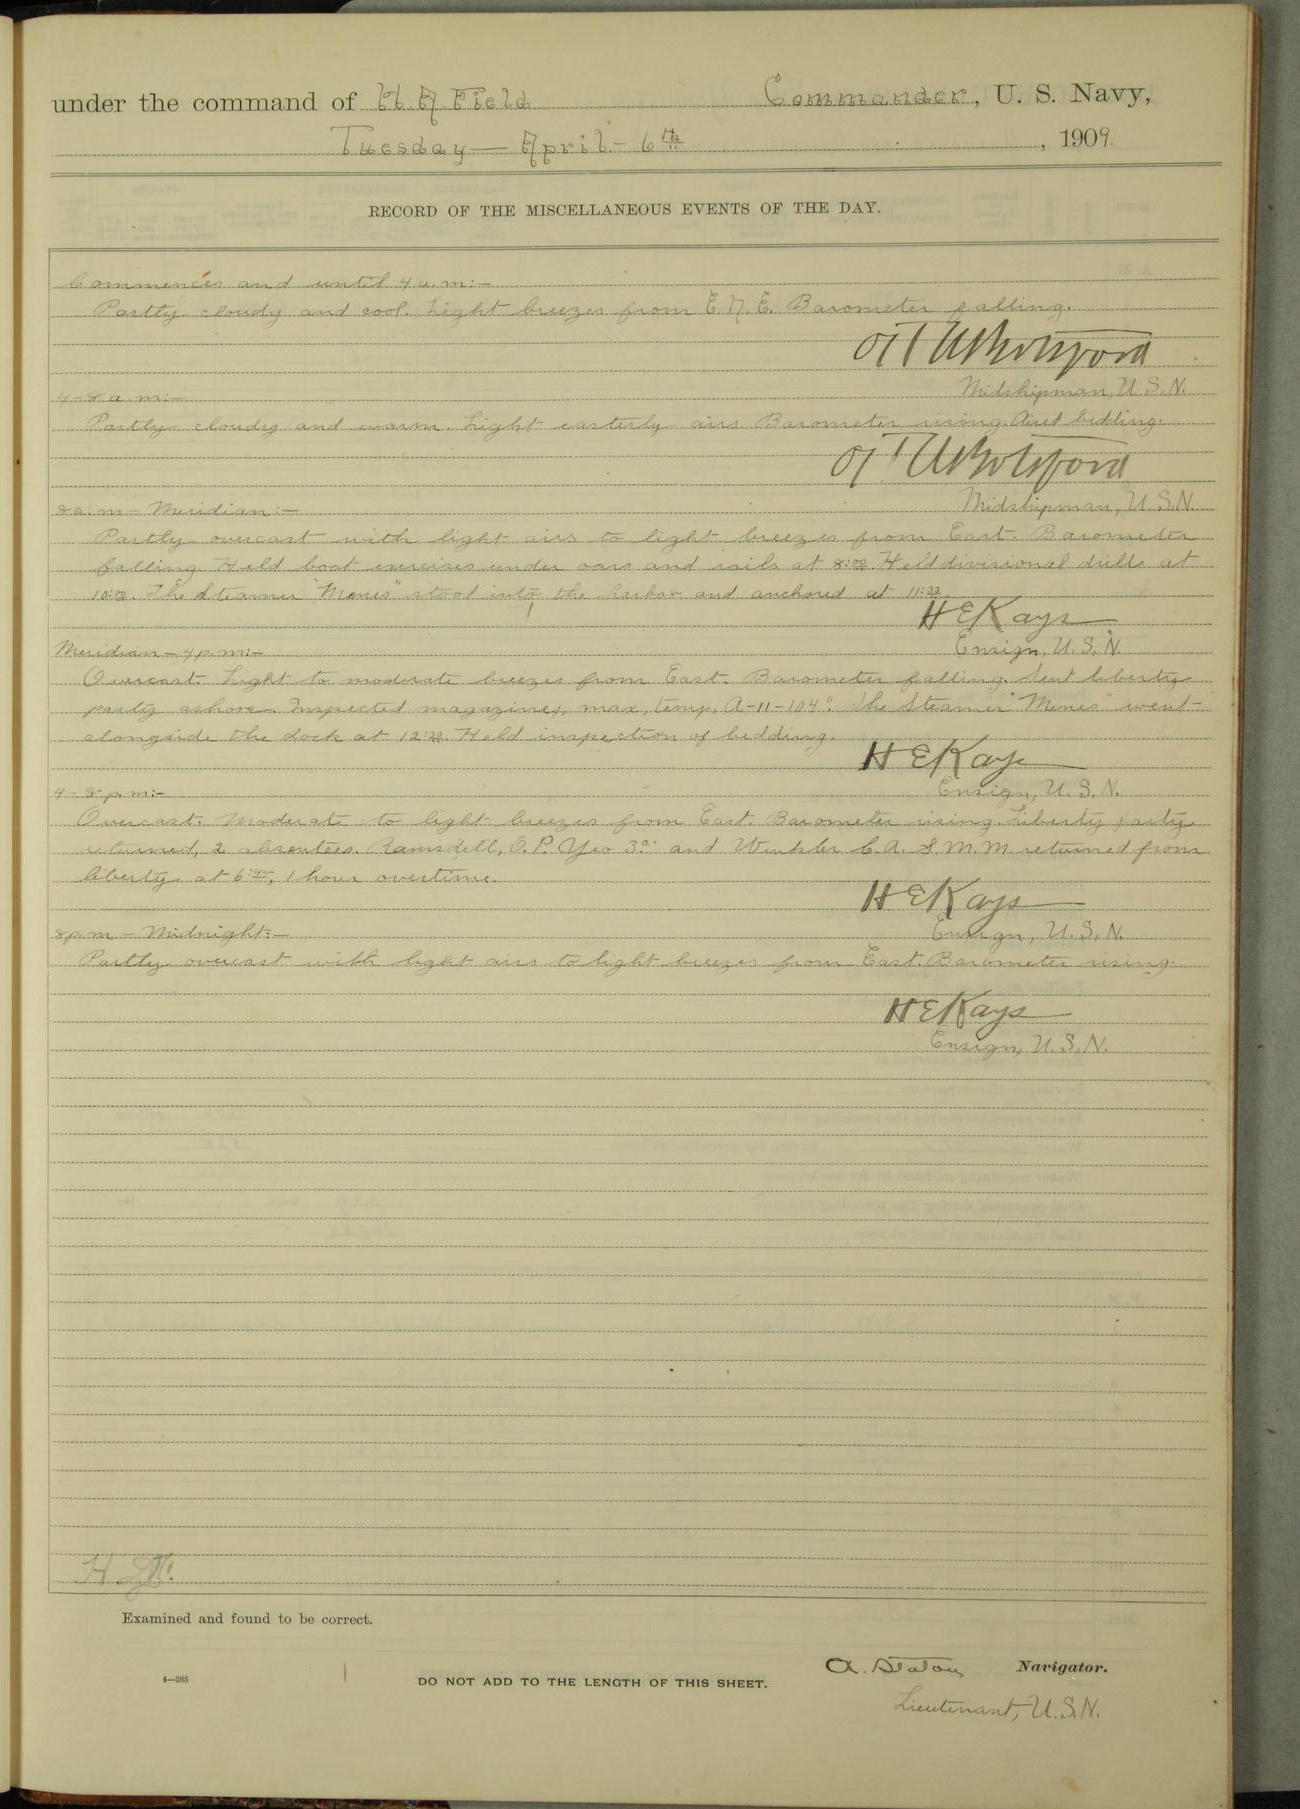 under the command of H A Field Commander, U. S. Navy,
Tuesday — April - 6th, 1909.
RECORD OF THE MISCELLANEOUS EVENTS OF THE DAY.
Commences and until 4 a.m:-
Partly cloudy and cool. Light breezes from E.N.E. Barometer falling.
Midshipman, U.S.N.
4-8 a.m:-
Partly cloudy and warm. Light easterly airs. Barometer rising. Aired bedding.
Midshipman, U.S.N.
8 a.m - Meridian:-
Partly overcast with light airs to light breezes from East. Barometer
falling. Held boat exercises under oars and sails at 8:00. Held divisional drills at
10:00. The steamer "Menes" stood into the harbor and anchored at 11:22.
H E Kays
Ensign, U.S.N.
Meridian - 4 p.m:-
Overcast. Light to moderate breezes from East. Barometer falling. Sent liberty
party ashore. Inspected magazines, max, temp, A-11-104°. The Steamer "Menes" went
alongside the dock at 12: Held inspection of bedding.
H E Kays
Ensign, U.S.N.
4 - 8 p.m:-
Overcast. Moderate to light breezes from East. Barometer rising. Liberty party
returned, 2 absentees. Ramsdell, O.P. Yeo 3c and Winkler C.A. S.M.M. returned from
liberty at 6:45, 1 hour overtime.
H E Kays
Ensign, U.S.N.
8 p.m - Midnight:-
Partly overcast with light airs to light breezes from East. Barometer rising.
H E Kays
Ensign, U.S.N.
H
Examined and found to be correct.
A. Staton Navigator.
4—265 DO NOT ADD TO THE LENGTH OF THIS SHEET.
Lieutenant, U.S.N.